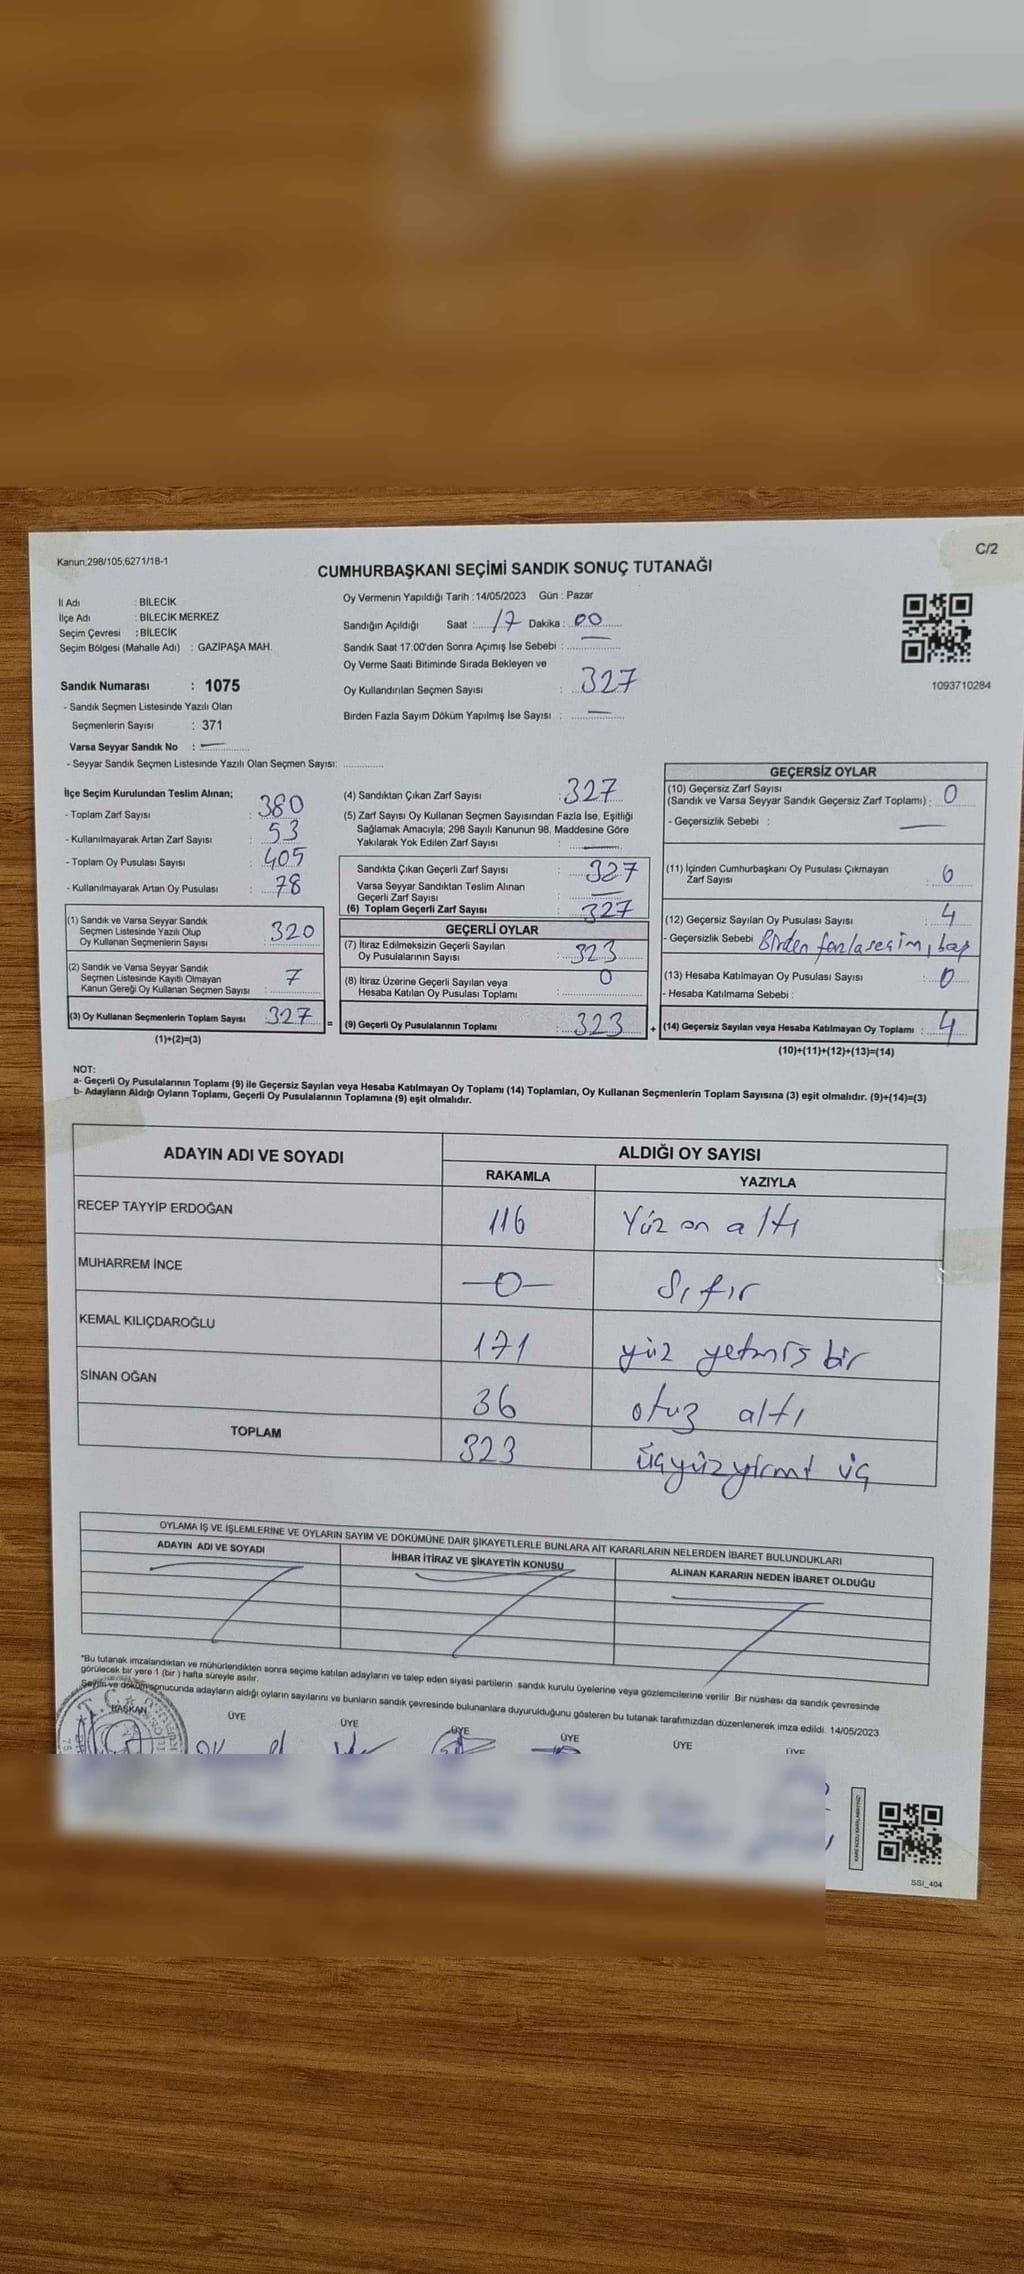 Kanun;298/105;6271/18-1
C/2
CUMHURBAŞKANI SEÇİMİ SANDIK SONUÇ TUTANAĞI
İl Adı : BİLECİK
İlçe Adı : BİLECİK MERKEZ
Seçim Çevresi : BİLECİK
Seçim Bölgesi (Mahalle Adı) : GAZİPAŞA MAH.
Sandık Numarası : 1075
- Sandık Seçmen Listesinde Yazılı Olan
Seçmenlerin Sayısı : 371
Varsa Seyyar Sandık No : —
- Seyyar Sandık Seçmen Listesinde Yazılı Olan Seçmen Sayısı: ............
Oy Vermenin Yapıldığı Tarih : 14/05/2023 Gün : Pazar
Sandığın Açıldığı Saat : 17 Dakika : 00
Sandık Saat 17:00'den Sonra Açımış İse Sebebi : —
Oy Verme Saati Bitiminde Sırada Bekleyen ve
Oy Kullandırılan Seçmen Sayısı : 327
Birden Fazla Sayım Döküm Yapılmış İse Sayısı : —
1093710284
İlçe Seçim Kurulundan Teslim Alınan;
- Toplam Zarf Sayısı : 380
- Kullanılmayarak Artan Zarf Sayısı : 53
- Toplam Oy Pusulası Sayısı : 405
- Kullanılmayarak Artan Oy Pusulası : 78
(1) Sandık ve Varsa Seyyar Sandık
Seçmen Listesinde Yazılı Olup
Oy Kullanan Seçmenlerin Sayısı : 320
(2) Sandık ve Varsa Seyyar Sandık
Seçmen Listesinde Kayıtlı Olmayan
Kanun Gereği Oy Kullanan Seçmen Sayısı : 7
(3) Oy Kullanan Seçmenlerin Toplam Sayısı : 327
(1)+(2)=(3)
(4) Sandıktan Çıkan Zarf Sayısı : 327
(5) Zarf Sayısı Oy Kullanan Seçmen Sayısından Fazla İse, Eşitliği
Sağlamak Amacıyla; 298 Sayılı Kanunun 98. Maddesine Göre
Yakılarak Yok Edilen Zarf Sayısı : —
Sandıkta Çıkan Geçerli Zarf Sayısı : 327
Varsa Seyyar Sandıktan Teslim Alınan
Geçerli Zarf Sayısı : —
(6) Toplam Geçerli Zarf Sayısı : 327
GEÇERLİ OYLAR
(7) İtiraz Edilmeksizin Geçerli Sayılan
Oy Pusulalarının Sayısı : 323
(8) İtiraz Üzerine Geçerli Sayılan veya
Hesaba Katılan Oy Pusulası Toplamı : 0
= (9) Geçerli Oy Pusulalarının Toplamı : 323 +
GEÇERSİZ OYLAR
(10) Geçersiz Zarf Sayısı
(Sandık ve Varsa Seyyar Sandık Geçersiz Zarf Toplamı) : 0
- Geçersizlik Sebebi : —
(11) İçinden Cumhurbaşkanı Oy Pusulası Çıkmayan
Zarf Sayısı : 0
(12) Geçersiz Sayılan Oy Pusulası Sayısı : 4
- Geçersizlik Sebebi Birden fazla seçim,
(13) Hesaba Katılmayan Oy Pusulası Sayısı : 0
- Hesaba Katılmama Sebebi :
(14) Geçersiz Sayılan veya Hesaba Katılmayan Oy Toplamı : 4
(10)+(11)+(12)+(13)=(14)
NOT:
a- Geçerli Oy Pusulalarının Toplamı (9) ile Geçersiz Sayılan veya Hesaba Katılmayan Oy Toplamı (14) Toplamları, Oy Kullanan Seçmenlerin Toplam Sayısına (3) eşit olmalıdır. (9)+(14)=(3)
b- Adayların Aldığı Oyların Toplamı, Geçerli Oy Pusulalarının Toplamına (9) eşit olmalıdır.
ADAYIN ADI VE SOYADI
ALDIĞI OY SAYISI
RAKAMLA YAZIYLA
RECEP TAYYİP ERDOĞAN 116 Yüz on altı
MUHARREM İNCE —0— Sıfır
KEMAL KILIÇDAROĞLU 171 yüz yetmiş bir
SİNAN OĞAN 36 otuz altı
TOPLAM 323 üçyüzyirmi üç
OYLAMA İŞ VE İŞLEMLERİNE VE OYLARIN SAYIM VE DÖKÜMÜNE DAİR ŞİKAYETLERLE BUNLARA AİT KARARLARIN NELERDEN İBARET BULUNDUKLARI
ADAYIN ADI VE SOYADI
İHBAR İTİRAZ VE ŞİKAYETİN KONUSU
ALINAN KARARIN NEDEN İBARET OLDUĞU
*Bu tutanak imzalandıktan ve mühürlendikten sonra seçime katılan adayların ve talep eden siyasi partilerin sandık kurulu üyelerine veya gözlemcilerine verilir .Bir nüshası da sandık çevresinde
görülecek bir yere 1 (bir ) hafta süreyle asılır.
Sayım ve döküm sonucunda adayların aldığı oyların sayılarını ve bunların sandık çevresinde bulunanlara duyurulduğunu gösteren bu tutanak tarafımızdan düzenlenerek imza edildi. 14/05/2023
BAŞKAN ÜYE ÜYE ÜYE ÜYE ÜYE ÜYE
SSI_404